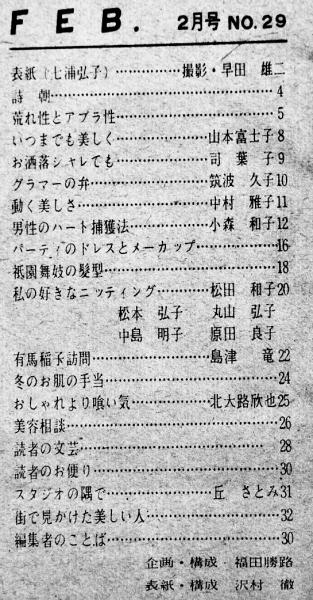 FEB. 2月号 NO.29
表紙(七浦弘子)……………撮影・早田 雄二
詩 朝……………4
荒れ性とアブラ性……………5
いつまでも美しく……………山本富士子 8
お洒落シャレても……………司 葉子 9
グラマーの弁……………筑波 久子 10
動く美しさ……………中村 雅子 11
男性のハート捕獲法……………小森 和子 12
パーティのドレスとメーカップ……………16
祇園舞妓の髪型……………18
私の好きなニッティング……………松田 和子 20
松本 弘子 丸山 弘子
中島 明子 原田 良子
有馬稲子訪問……………島津 竜 22
冬のお肌の手当……………24
おしゃれより喰い気……………北大路欣也 25
美容相談……………26
読者の文芸……………28
読者のお便り……………30
スタジオの隅で……………丘 さとみ 31
街で見かけた美しい人……………32
編集者のことば……………30
企画・構成 福田勝路
表紙・構成 沢村 徹